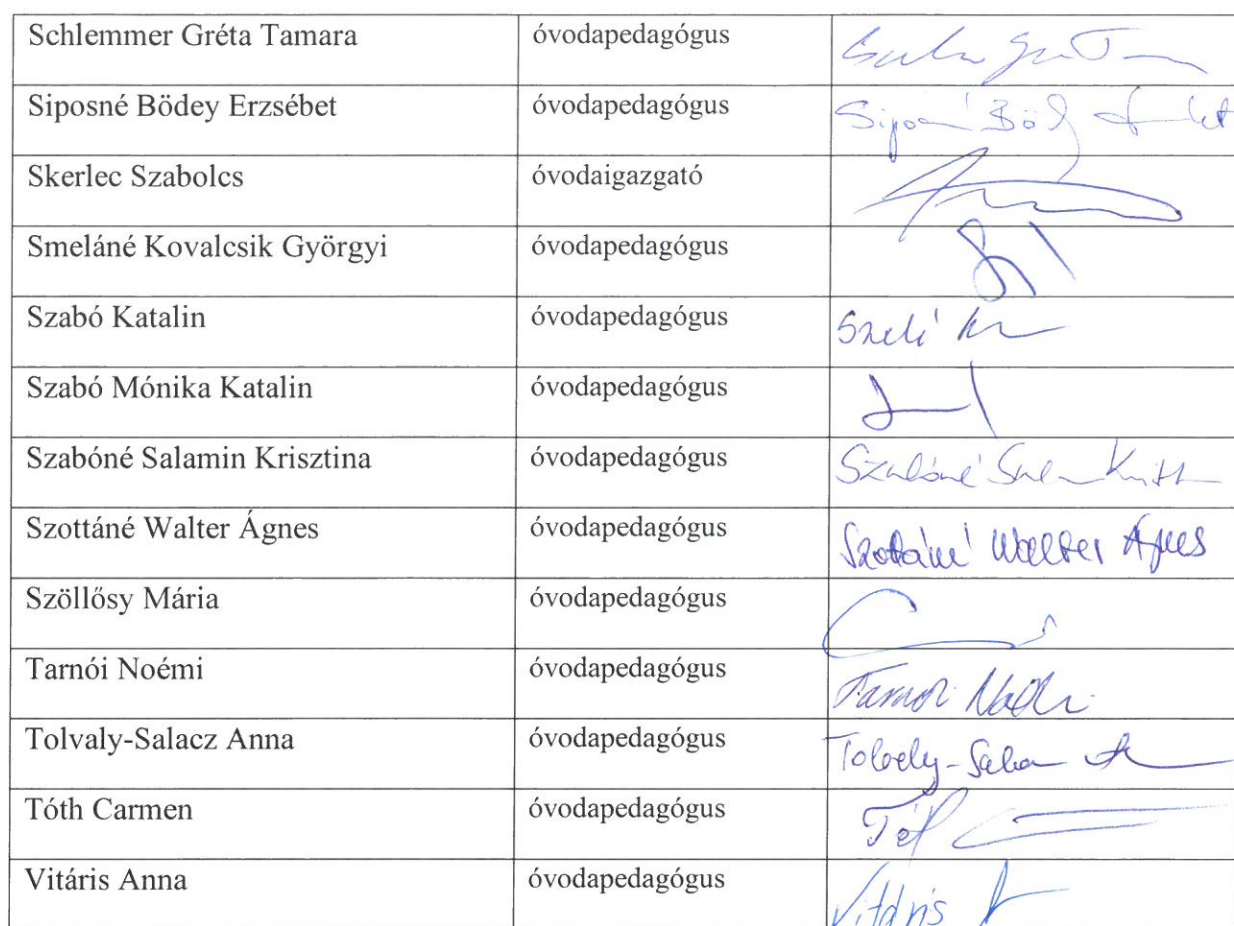 Schlemmer Gréta Tamara óvodapedagógus
Siposné Bödey Erzsébet óvodapedagógus
Skerlec Szabolcs óvodaigazgató
Smeláné Kovalcsik Györgyi óvodapedagógus
Szabó Katalin óvodapedagógus
Szabó Mónika Katalin óvodapedagógus
Szabóné Salamin Krisztina óvodapedagógus Szabóné
Szottáné Walter Ágnes óvodapedagógus Szottáné Walter Ágnes
Szöllősy Mária óvodapedagógus
Tarnói Noémi óvodapedagógus
Tolvaly-Salacz Anna óvodapedagógus
Tóth Carmen óvodapedagógus
Vitáris Anna óvodapedagógus Vitáris